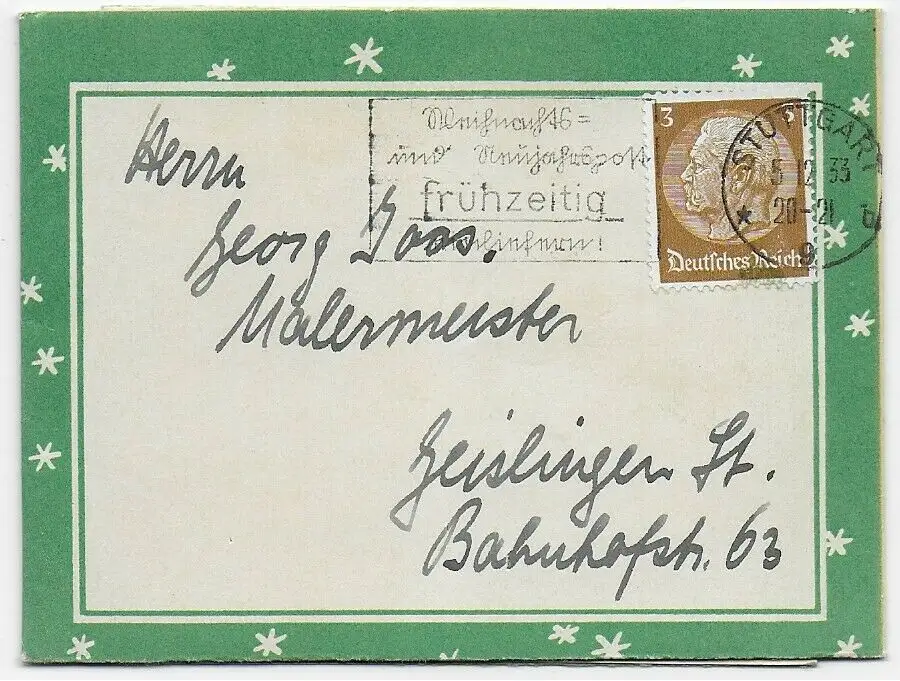 Weihnachts=
und Neujahrspost
frühzeitig
einliefern!
3 3
Deutsches Reich
STUTTGART
5.12.33
20-21 b
★ 9
Herrn
Georg Joos.
Malermeister
Geislingen St.
Bahnhofstr. 63